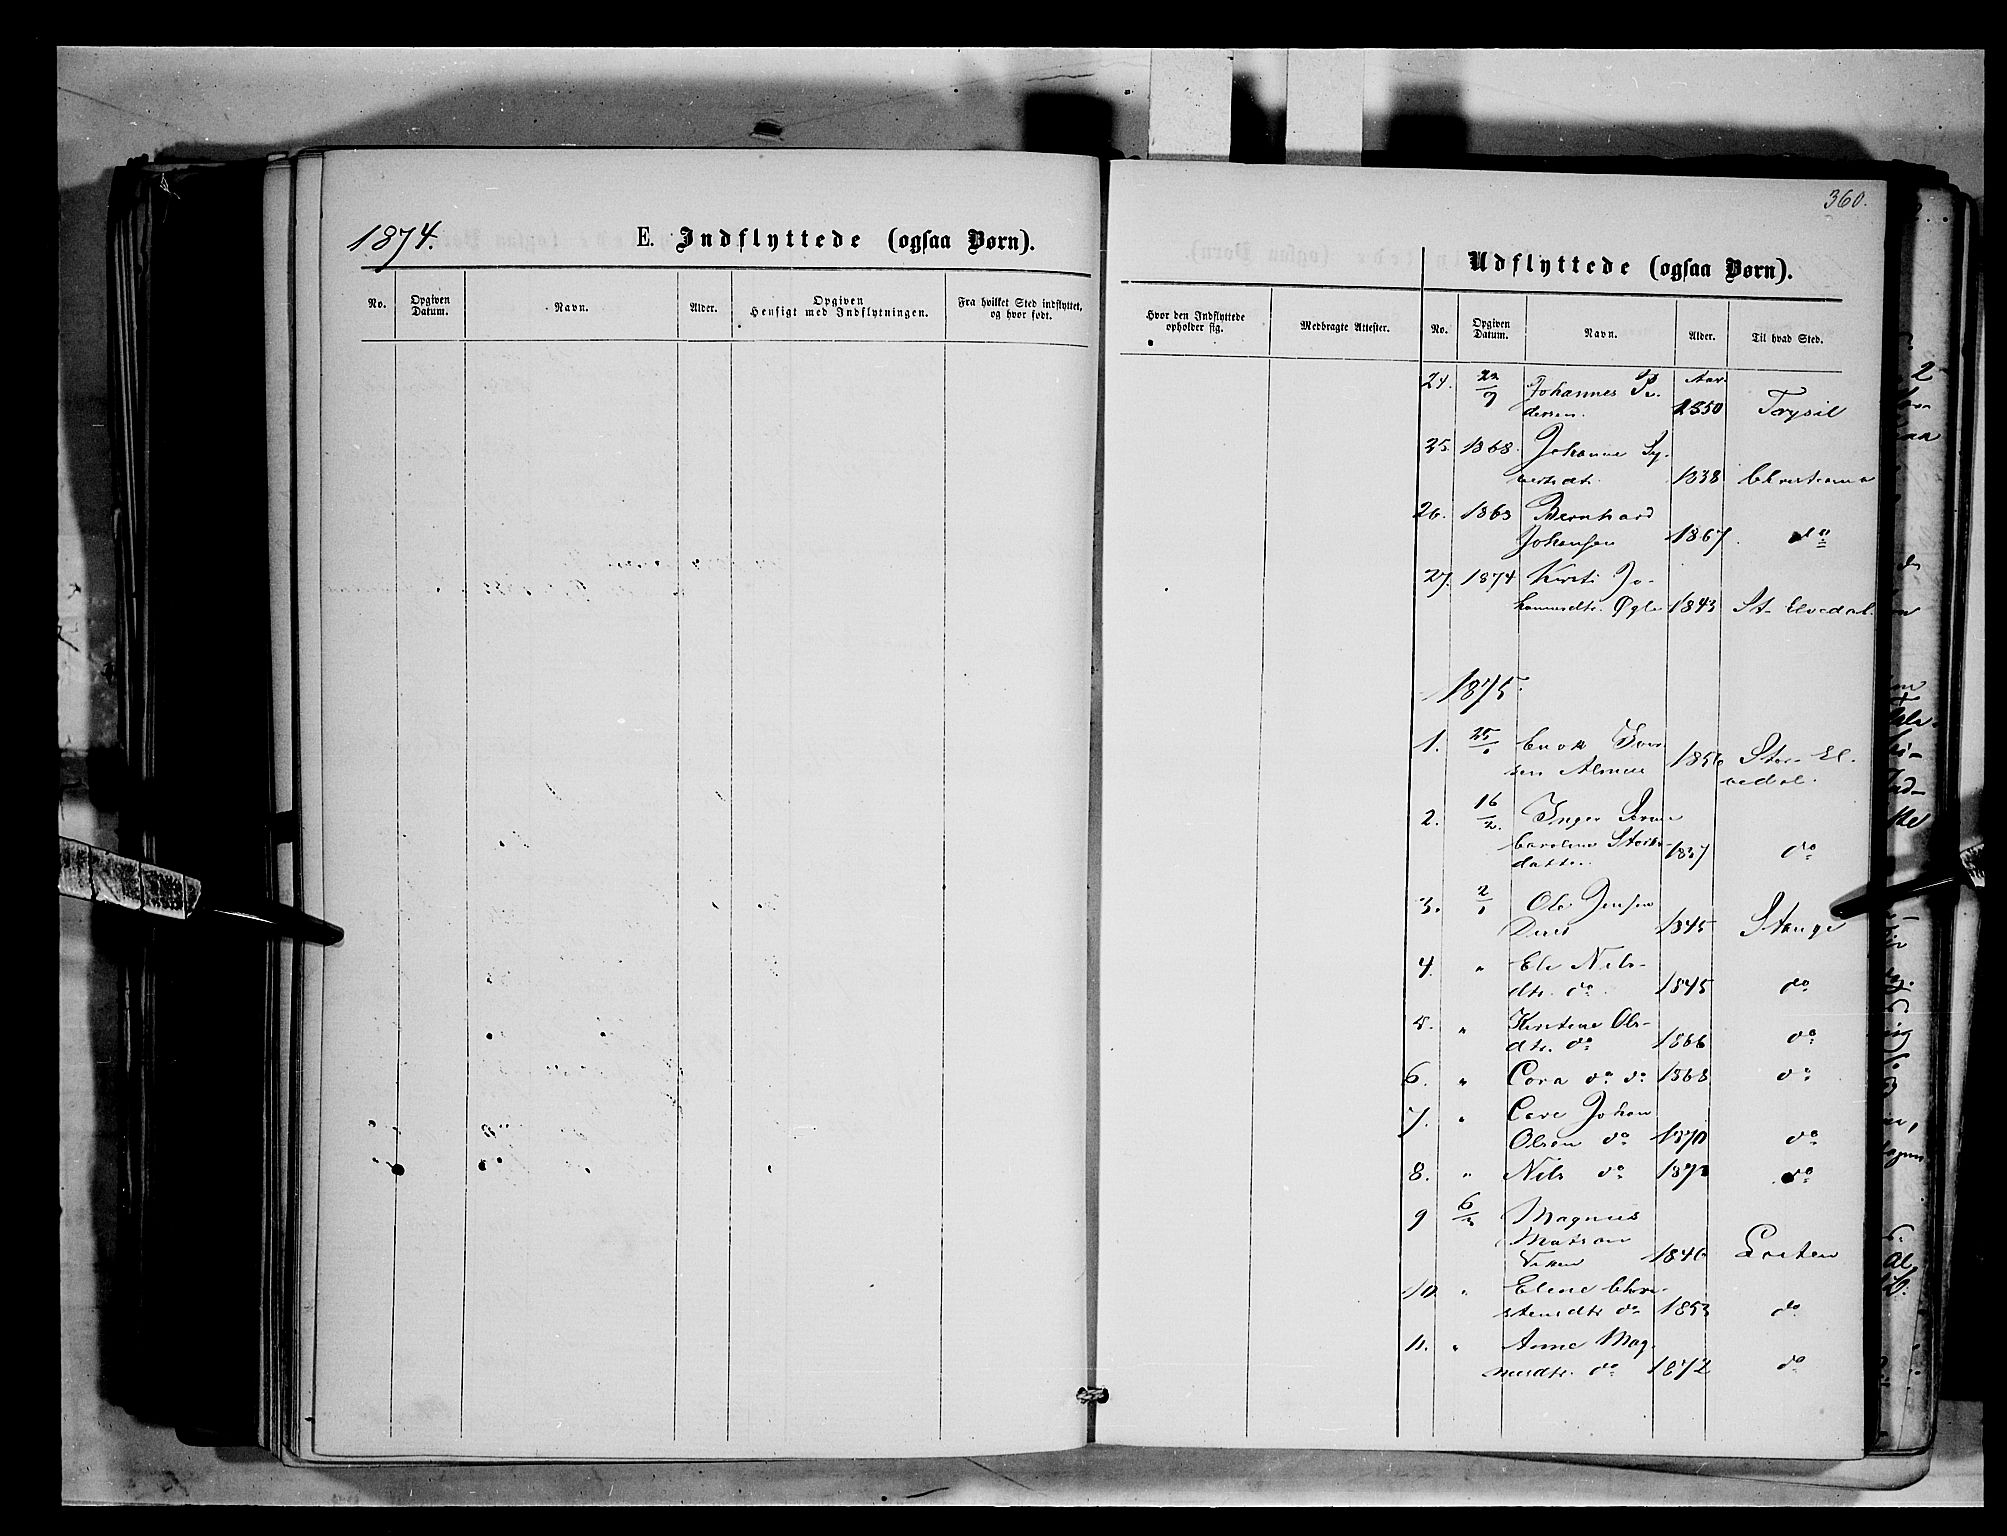 360.
1874.
E. Indflyttede (ogsaa Børn).
No.
Opgiven
Datum.
Navn.
Alder.
Opgiven
Hensigt med Indflytningen.
Fra hvilket Sted indflyttet,
og hvor født.
Udflyttede (ogsaa Børn).
Hvor den Indflyttede
opholder sig.
Medbragte Attester.
No.
Opgiven
Datum.
Navn.
Alder.
Til hvad Sted.
24. 22/9 Johannes Pe- Aar
dersen. 1850 Trysil
25. 1868. Johanne Sy-
versdtr. 1838 Christiania
26. 1868 Bernhard
Johansen 1867. do
27. 1874 Kirsti Jo-
hannesdtr. Øgle 1843 St. Elvedal.
1875.
1. 25/1 Enok Iver
sen 1856 Stor El-
vedal.
2. 16/2. Inger
Caroline
datter 1837 do
3. 2/1 Ole Jensen
1845 Stange
4. " Eli Nils-
dtr. do 1845 do
5. " Kirstine Ols-
dtr. do 1866 do
6. " Cora do do 1868 do
7. " Carl Johan
Olsen do 1870 do
8. " Nils do do
9 6/2 Magnus
Matsen
1846
10. " Elene Chri-
stensdtr do 1853 do
11. " Anne Mag-
nusdtr. do 1872 do